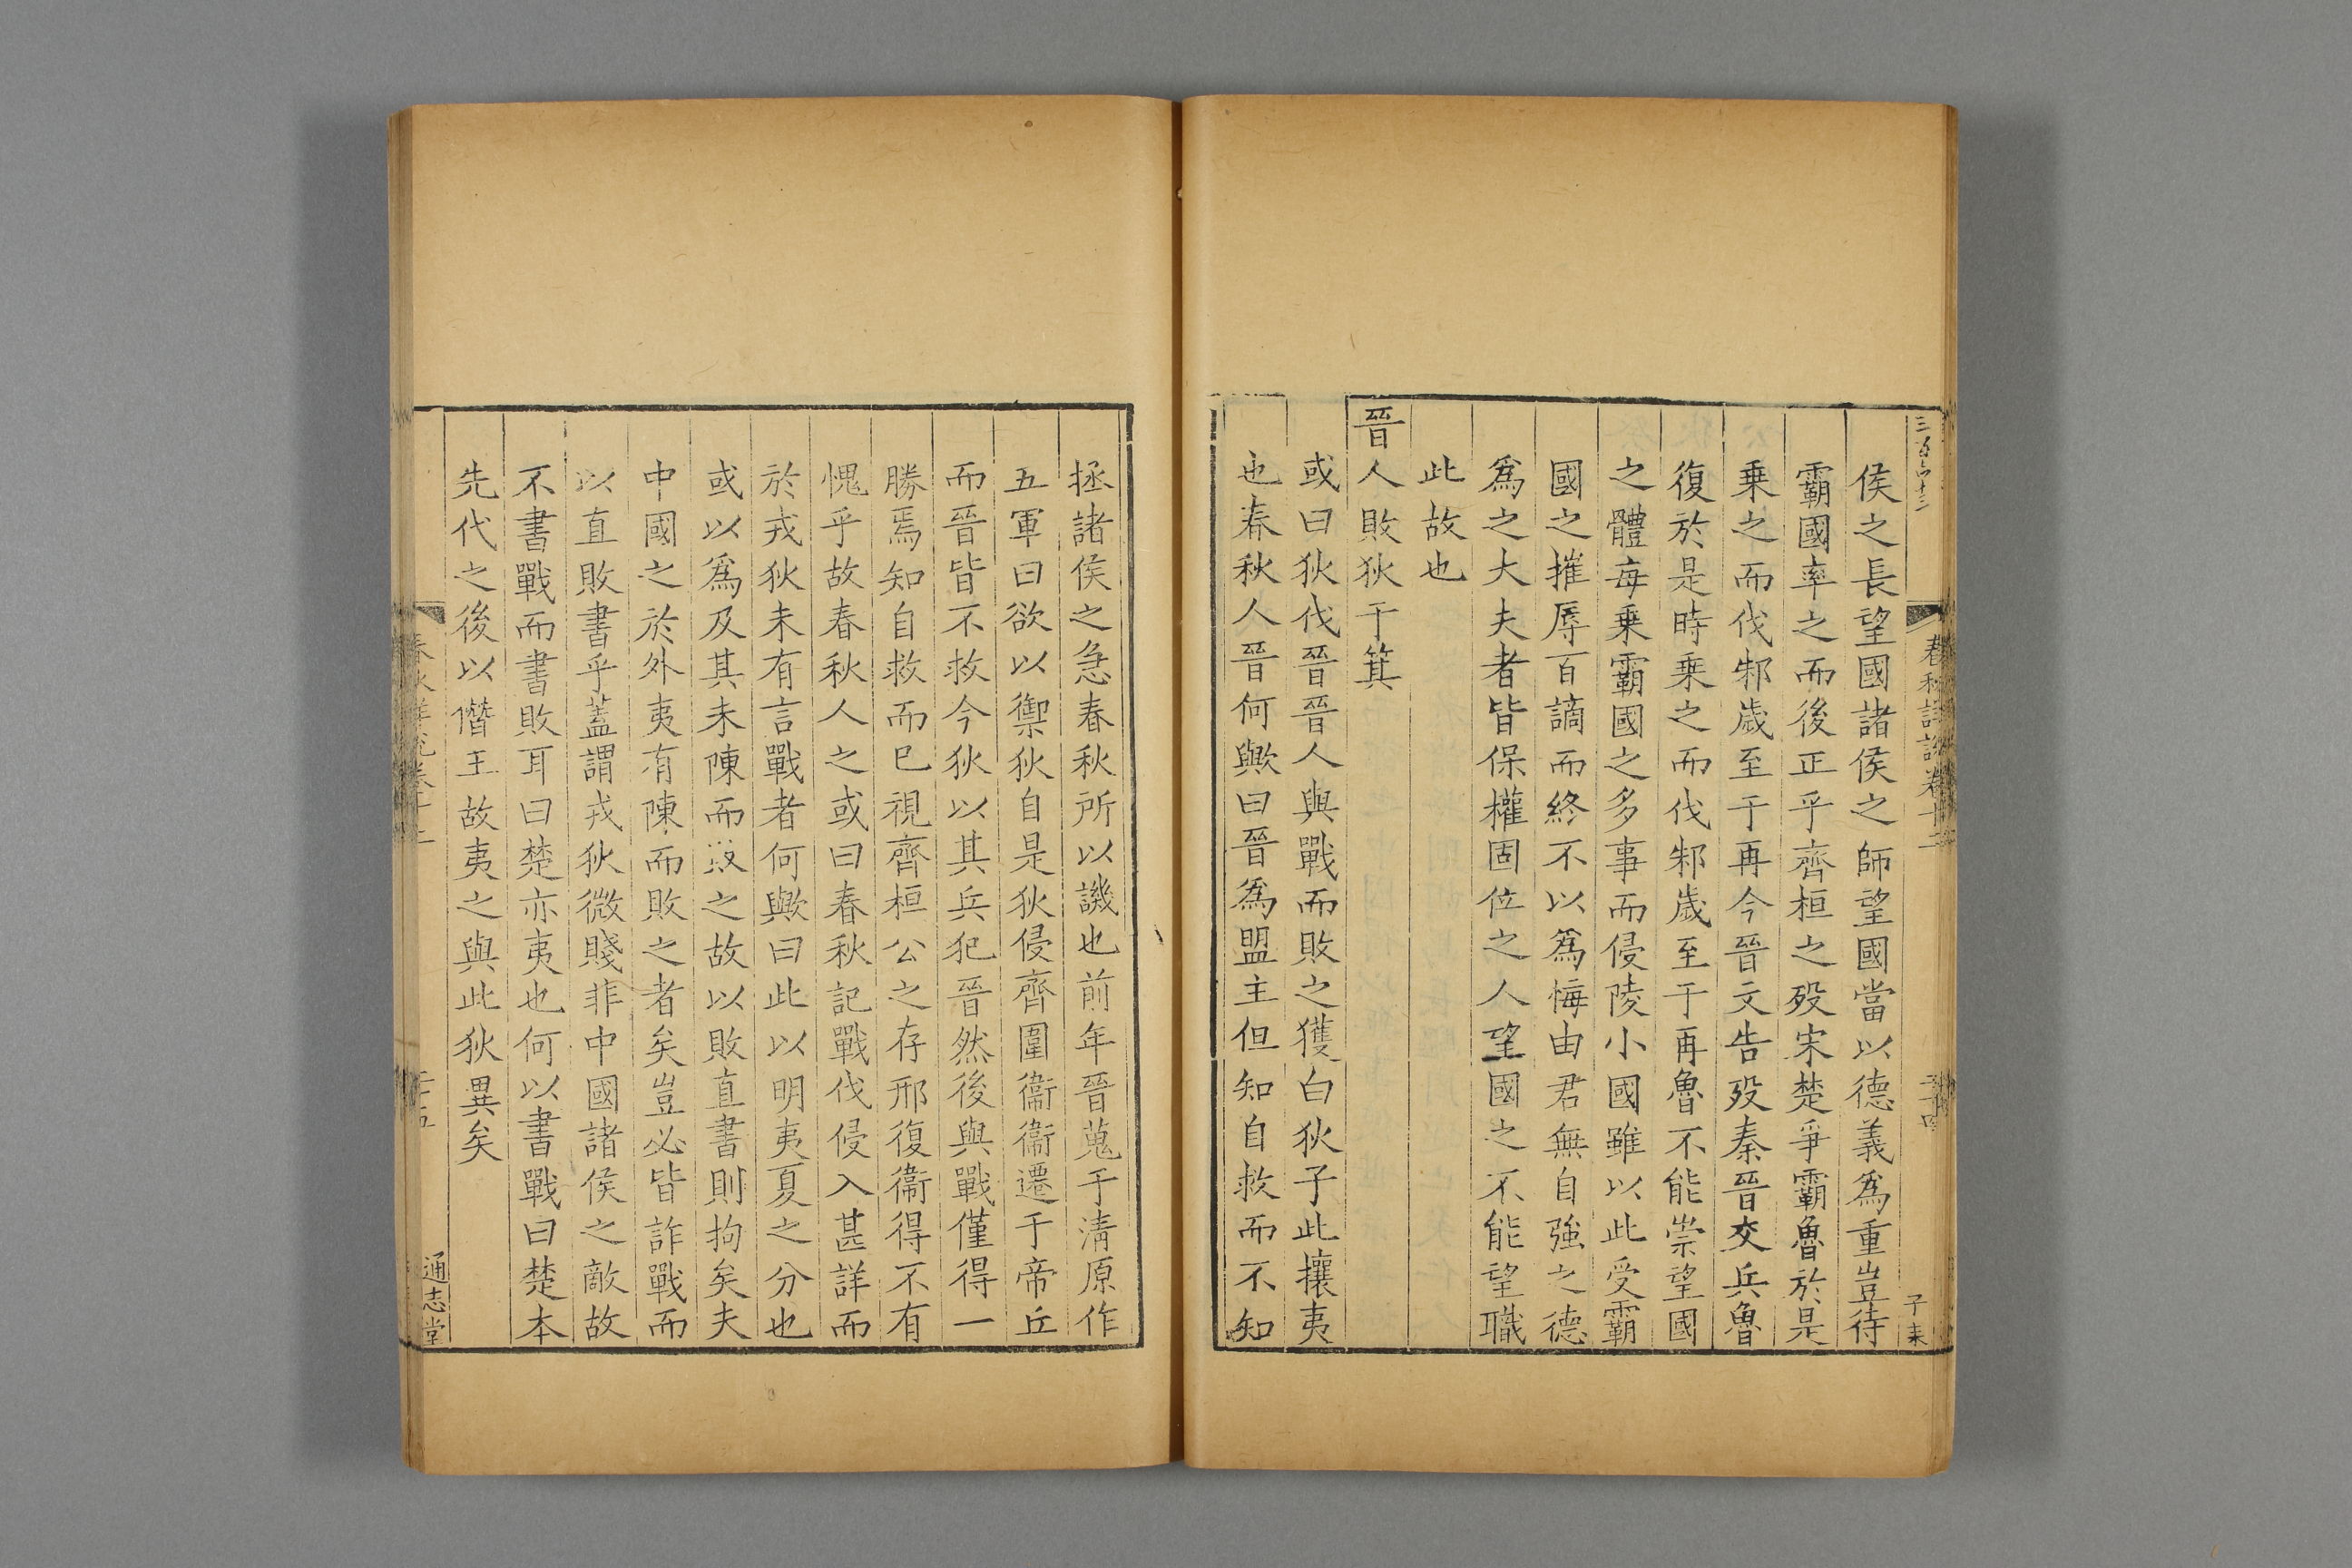 三百六十二
春秋詳說卷十二
二十四
子來
侯之長望國諸侯之師望國當以德義爲重豈待
霸國率之而後正乎齊桓之歿宋楚爭霸魯於是
乗之而伐邾歲至于再今晉文告歿秦晉交兵魯
復於是時乗之而伐邾歲至于再魯不能崇望國
之體每乗霸國之多事而侵陵小國雖以此受霸
國之摧辱百謫而終不以爲悔由君無自強之德
爲之大夫者皆保權固位之人望國之不能望職
此故也
晉人敗狄于箕
或曰狄伐晉晉人與戰而敗之獲白狄子此攘夷
也春秋人晉何歟曰晉爲盟主但知自救而不知
拯諸侯之急春秋所以譏也前年晉蒐于清原作
五軍曰欲以禦狄自是狄侵齊圍衞衞遷于帝丘
而晉皆不救今狄以其兵犯晉然後與戰僅得一
勝焉知自救而已視齊桓公之存邢復衞得不有
愧乎故春秋人之或曰春秋記戰伐侵入甚詳而
於戎狄未有言戰者何歟曰此以明夷夏之分也
或以爲及其未陳而敗之故以敗直書則拘矣夫
中國之於外夷有陳而敗之者矣豈必皆詐戰而
以直敗書乎蓋謂戎狄微賤非中國諸侯之敵故
不書戰而書敗耳曰楚亦夷也何以書戰曰楚本
先代之後以僭王故夷之與此狄異矣
春秋詳說卷十二
二十五
通志堂